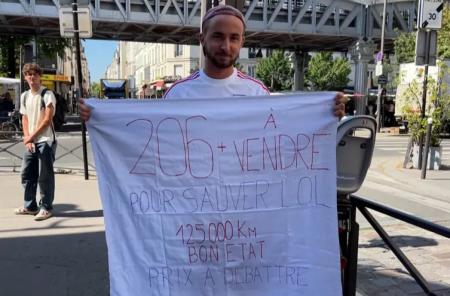 À
206+ VENDRE
POUR SAUVER LOL
125.000 Km
BON ETAT
PRIX A DEBATTRE
30